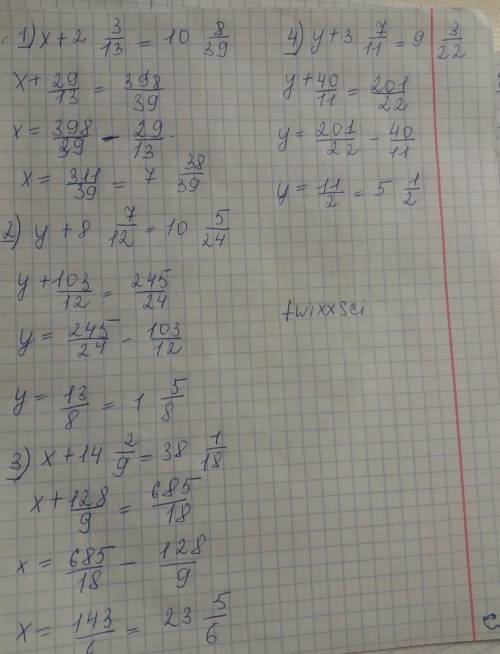 1) x + 2 3/13 = 10 8/39
x + 29/13 = 398/39
x = 398/39 - 29/13.
x = 311/39 = 7 38/39
2) y + 8 7/12 = 10 5/24
y + 103/12 = 245/24
y = 245/24 - 103/12
y = 13/8 = 1 5/8
3) x + 14 2/9 = 38 1/18
x + 128/9 = 685/18
x = 685/18 - 128/9
x = 143/6 = 23 5/6
4) y + 3 7/11 = 9 3/22
y + 40/11 = 201/22
y = 201/22 - 40/11
y = 11/2 = 5 1/2
twixxsci